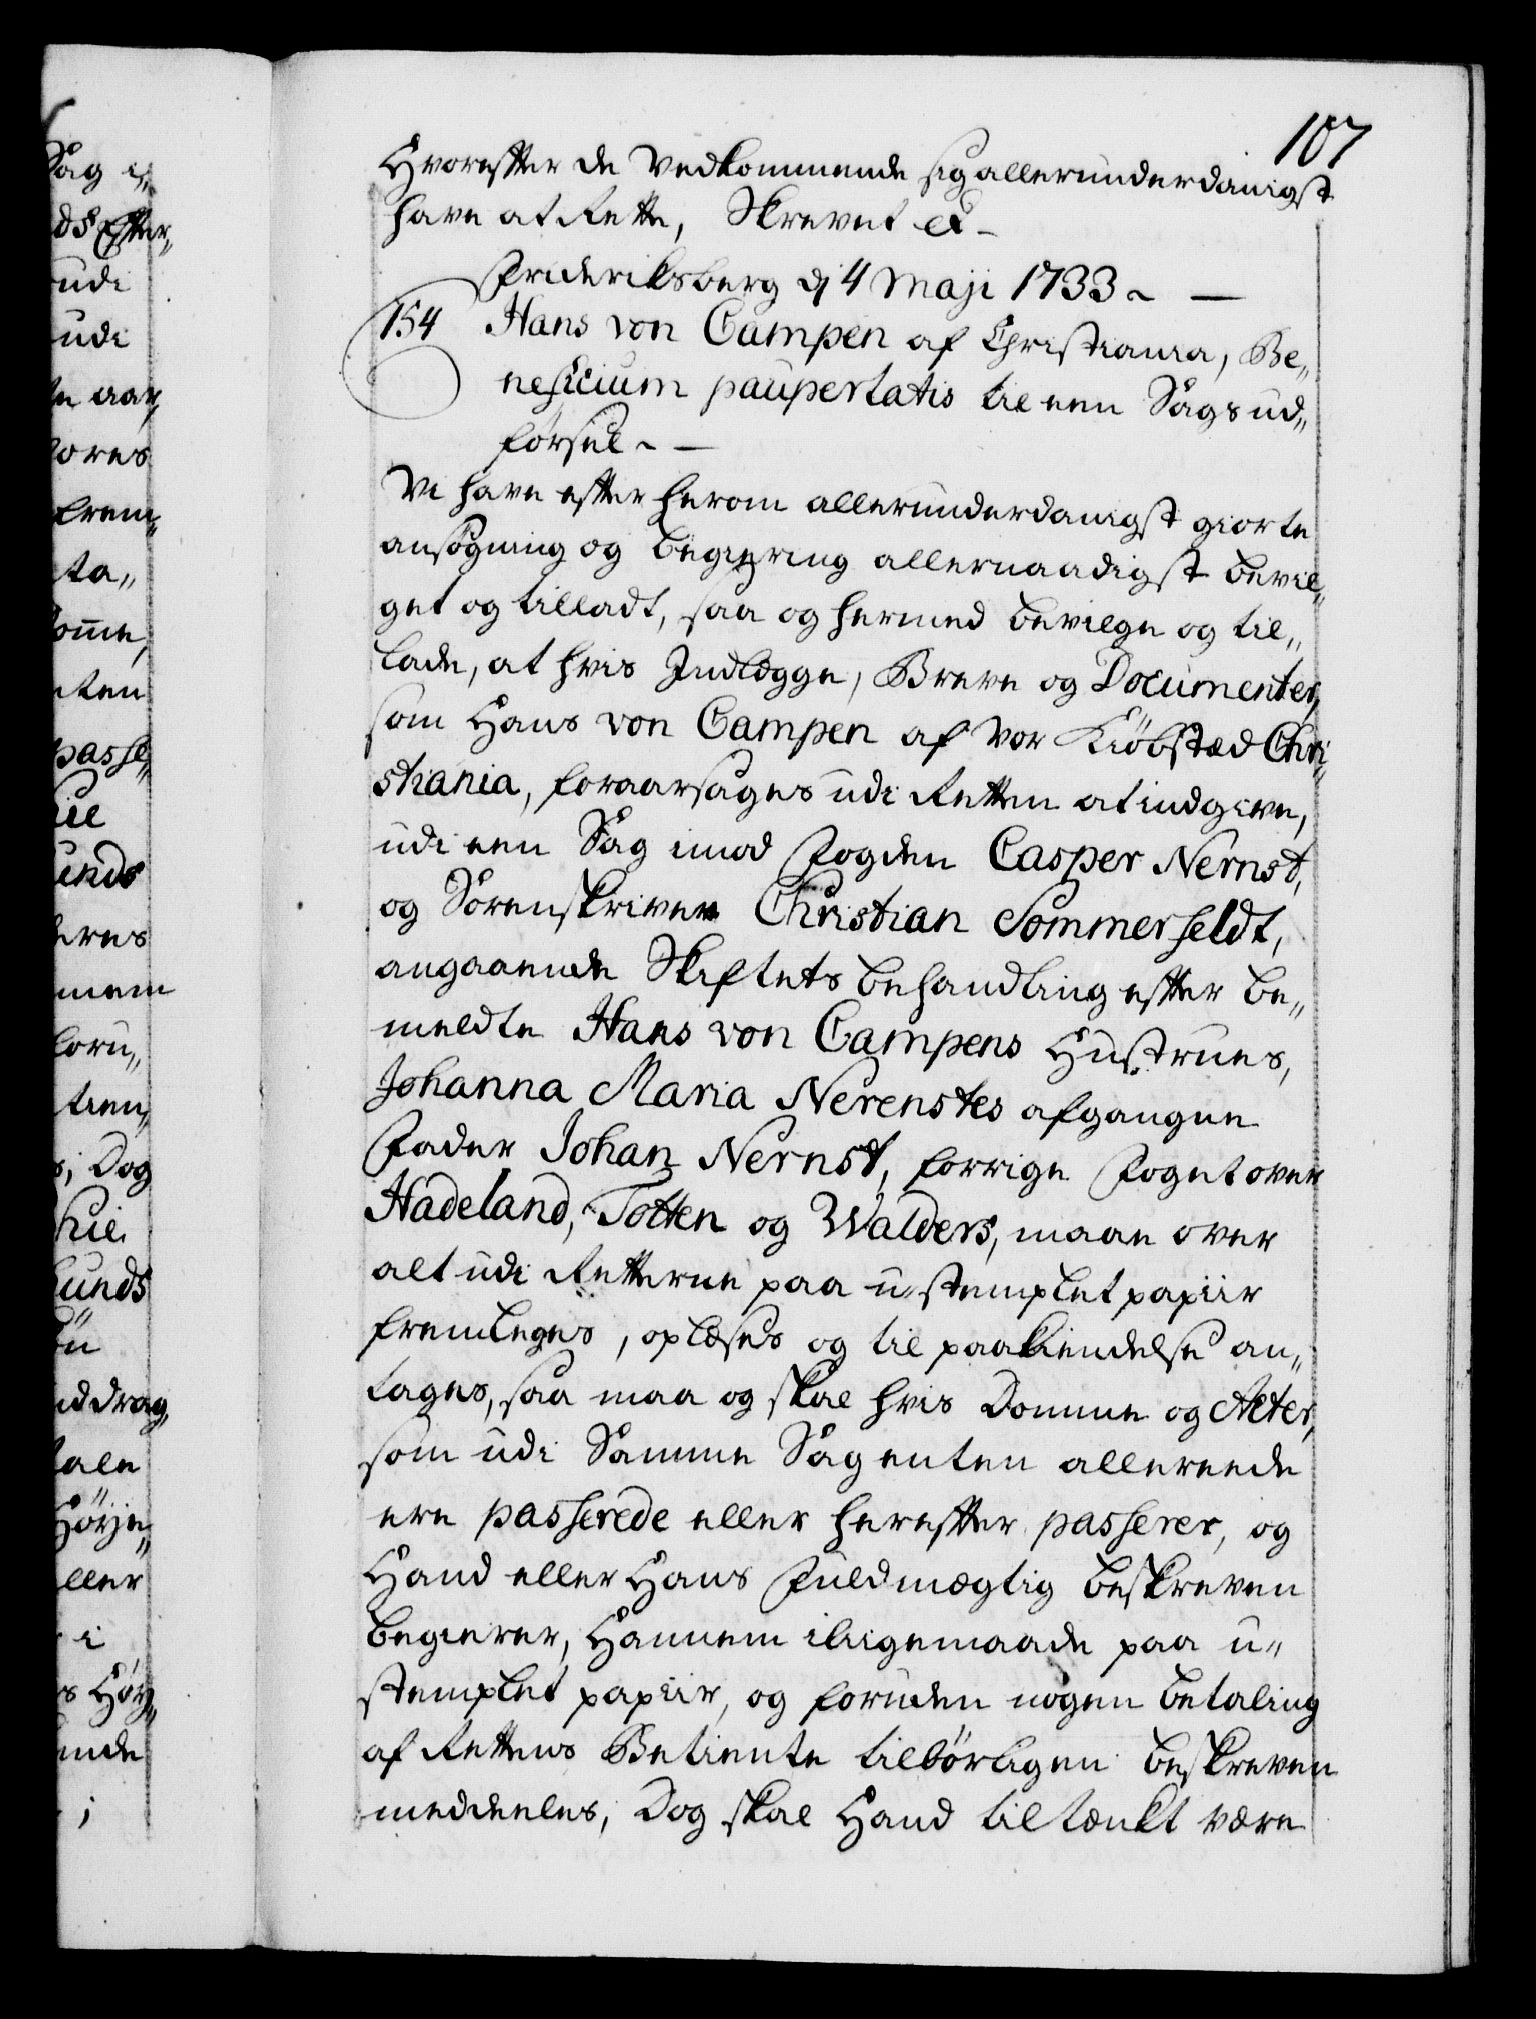 107
Hvorefter de Vedkommende sig allerunderdanigst
have at Rette, Skrevet &
Frideriksberg dj 4 Maji 1733 ~ —
154 Hans von Campen af Christiania, Be„
neficium paupertatis til een Sags ud„
førsel ~ —
Vi have efter herom allerunderdanigst giorte
ansøgning og begiering allernaadigst bevil„
get og tilladt, saa og hermed bevilge og til„
lade, at hvis Indlegge, Breve og Documenter,
som Hans von Campen af Vor Kiøbstæd Chri„
stiania, foraarsages udi Retten at indgive,
udi een Sag imod Fogden Casper Nernst,
og Sorenskriver Christian Sommerfeldt,
angaaende Skiftets behandling efter be„
meldte Hans von Campens Hustrues,
Johanna Maria Nerenstes afgangne
Fader Johan Nernst, forrige Foget over
Hadeland, Totten og Walders, maae over
alt udi Retterne paa u-stemplet papiir
fremlegges, oplæses og til paakiendelse an„
tages, saa maa og skal hvis Domme og Acter,
som udi Samme Sag enten allereede
ere passerede eller herefter passerer, og
Hand eller Hans Fuldmægtig beskreven
begierer, Hannem iligemaade paa u„
stemplet papiir, og foruden nogen betaling
af Rettens Betiente tilbørligen beskreven
meddeeles, Dog skal Hand tiltænkt være
Sag i„
ds Efter„
udi
udi
te aar,
vores
frem„
ta„
omme,
enten
passe„
til
unds
eres
mem
foru„
tien„
s, Dog
unds
uddrag,
tale
ller
i